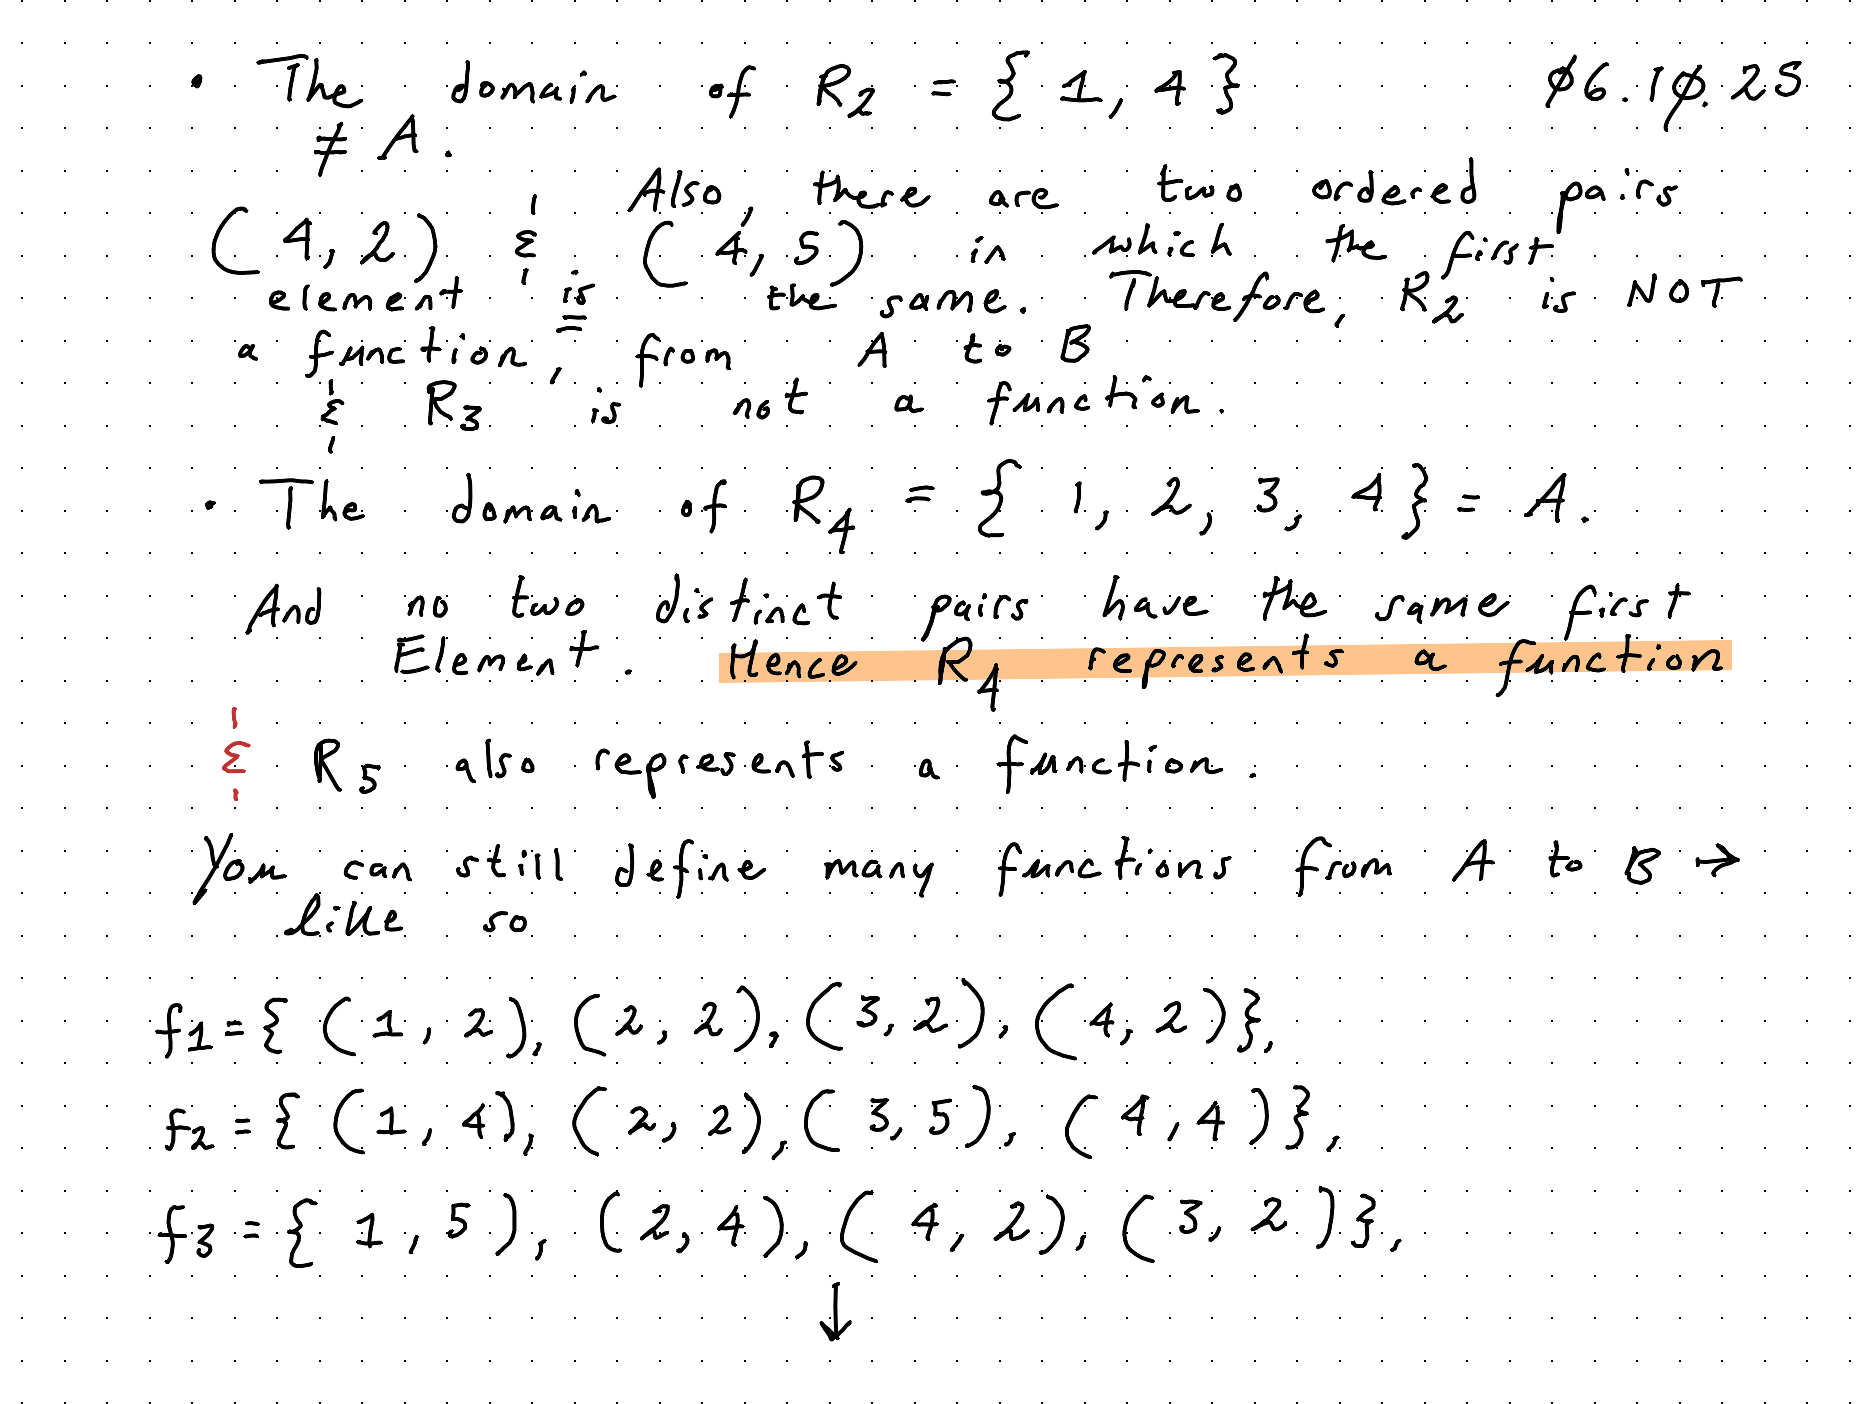 • The domain of R2 = { 1, 4 } ø6.1ø.25
≠ A.
Also, there are two ordered pairs
( 4, 2 ) & ( 4, 5 ) in which the first
element is the same. Therefore, R2 is NOT
a function, from A to B
& R3 is not a function.
• The domain of R4 = { 1, 2, 3, 4 } = A.
And no two distinct pairs have the same first
Element. Hence R4 represents a function
& R5 also represents a function.
You can still define many functions from A to B →
like so
f1 = { ( 1, 2 ), ( 2, 2 ), ( 3, 2 ), ( 4, 2 ) },
f2 = { ( 1, 4 ), ( 2, 2 ), ( 3, 5 ), ( 4, 4 ) },
f3 = { 1, 5 ), ( 2, 4 ), ( 4, 2 ), ( 3, 2 ) },
↓